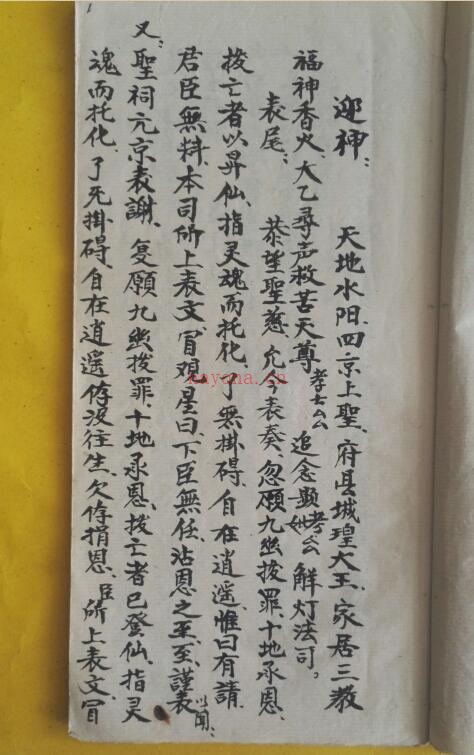 迎神：
天地水阳、四京上聖、府县城瑝大王、家居三教
福神香火、大乙尋声救苦天尊孝士厶厶追念顯考妣厶厶解灯法司。
表尾：恭望聖慈、允今表奏、忽願九幽拔罪、十地承恩、
拔亡者以昇仙、指灵魂而托化、了無掛碍、自在逍遥、惟曰有請、
君臣無料、本司所上表文、冒艰星曰、下臣無任、沾恩之至、至、謹表以闻：
又：聖祠元京表謝、复願九幽拔罪、十地承恩、拔亡者已登仙、指灵
魂而托化、了无掛碍、自在逍遥、停没往生、欠停捐恩、臣所上表文、冒
kayana.cn